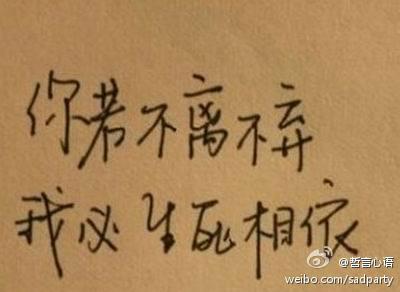 你若不离不弃
我必生死相依
@哲言心语
weibo.com/sadparty